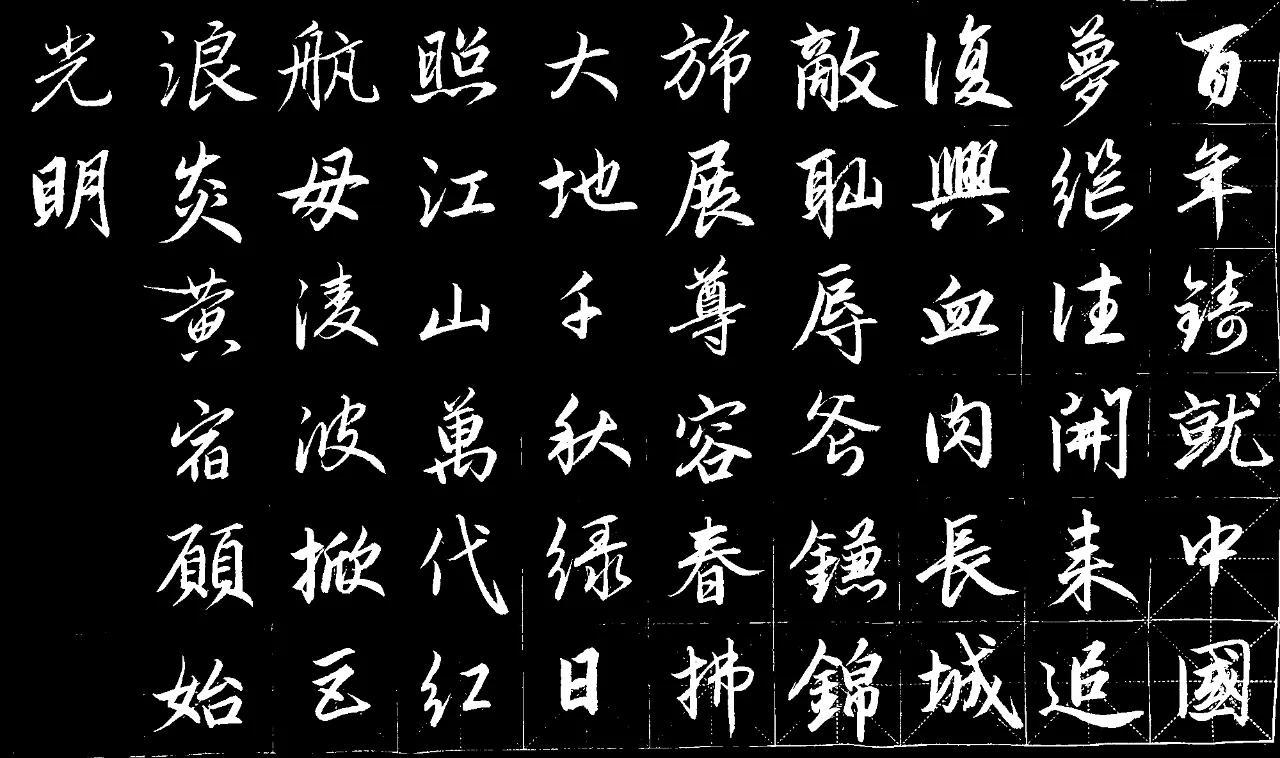 百年鑄就中國
夢继往開来追
復興血肉長城
敵耻辱斧鎌錦
旆展尊容春拂
大地千秋绿日
照江山萬代红
航母淩波掀巨
浪炎黄宿願始
光明